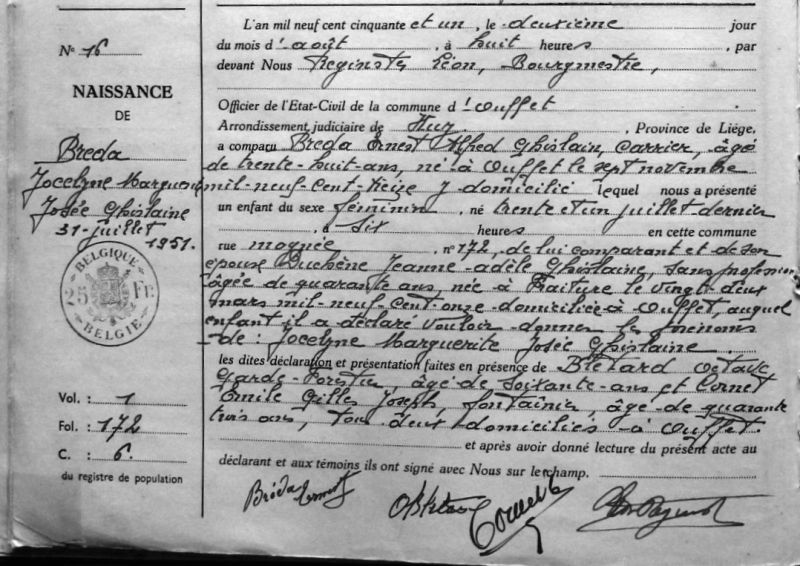 N° 16
NAISSANCE
DE
Breda
Jocelyne Marguerite
Josée Ghislaine
31-juillet
1951.
BELGIQUE
25 Fr.
BELGIE
Vol. : 1
Fol. : 172
C. : 6
du registre de population
L'an mil neuf cent cinquante et un, le deuxième jour
du mois d'août, à huit heures, par
devant Nous Léon, Bourgmestre,
Officier de l'Etat-Civil de la commune d'Ouffet
Arrondissement judiciaire de Huy, Province de Liége,
a comparu Breda Ernest Alfred Ghislain, Carrier, âgé
de trente-huit-ans, né à Ouffet le sept novembre
mil-neuf-cent-treize y domicilié lequel nous a présenté
un enfant du sexe féminin, né trente et un juillet-dernier
, à six heures en cette commune
rue mognée n° 172, de lui comparant et de son
épouse Duchène Jeanne-adèle Ghislaine, sans profession
âgée de quarante ans, née à Fraiture le vingt-deux
mars mil-neuf-cent-onze domiciliée à Ouffet, auquel
enfant il a déclaré vouloir donner les prénoms
de : Jocelyne Marguerite Josée Ghislaine.
les dites déclaration et présentation faites en présence de Blétard Octave,
Garde-Forestier, âgé de soixante-ans et Cornet
Emile Gilles Joseph, fontainier, âgé de quarante
trois ans, tous deux domiciliés à Ouffet.
et après avoir donné lecture du présent acte au
déclarant et aux témoins ils ont signé avec Nous sur le champ.
Bréda Ernest